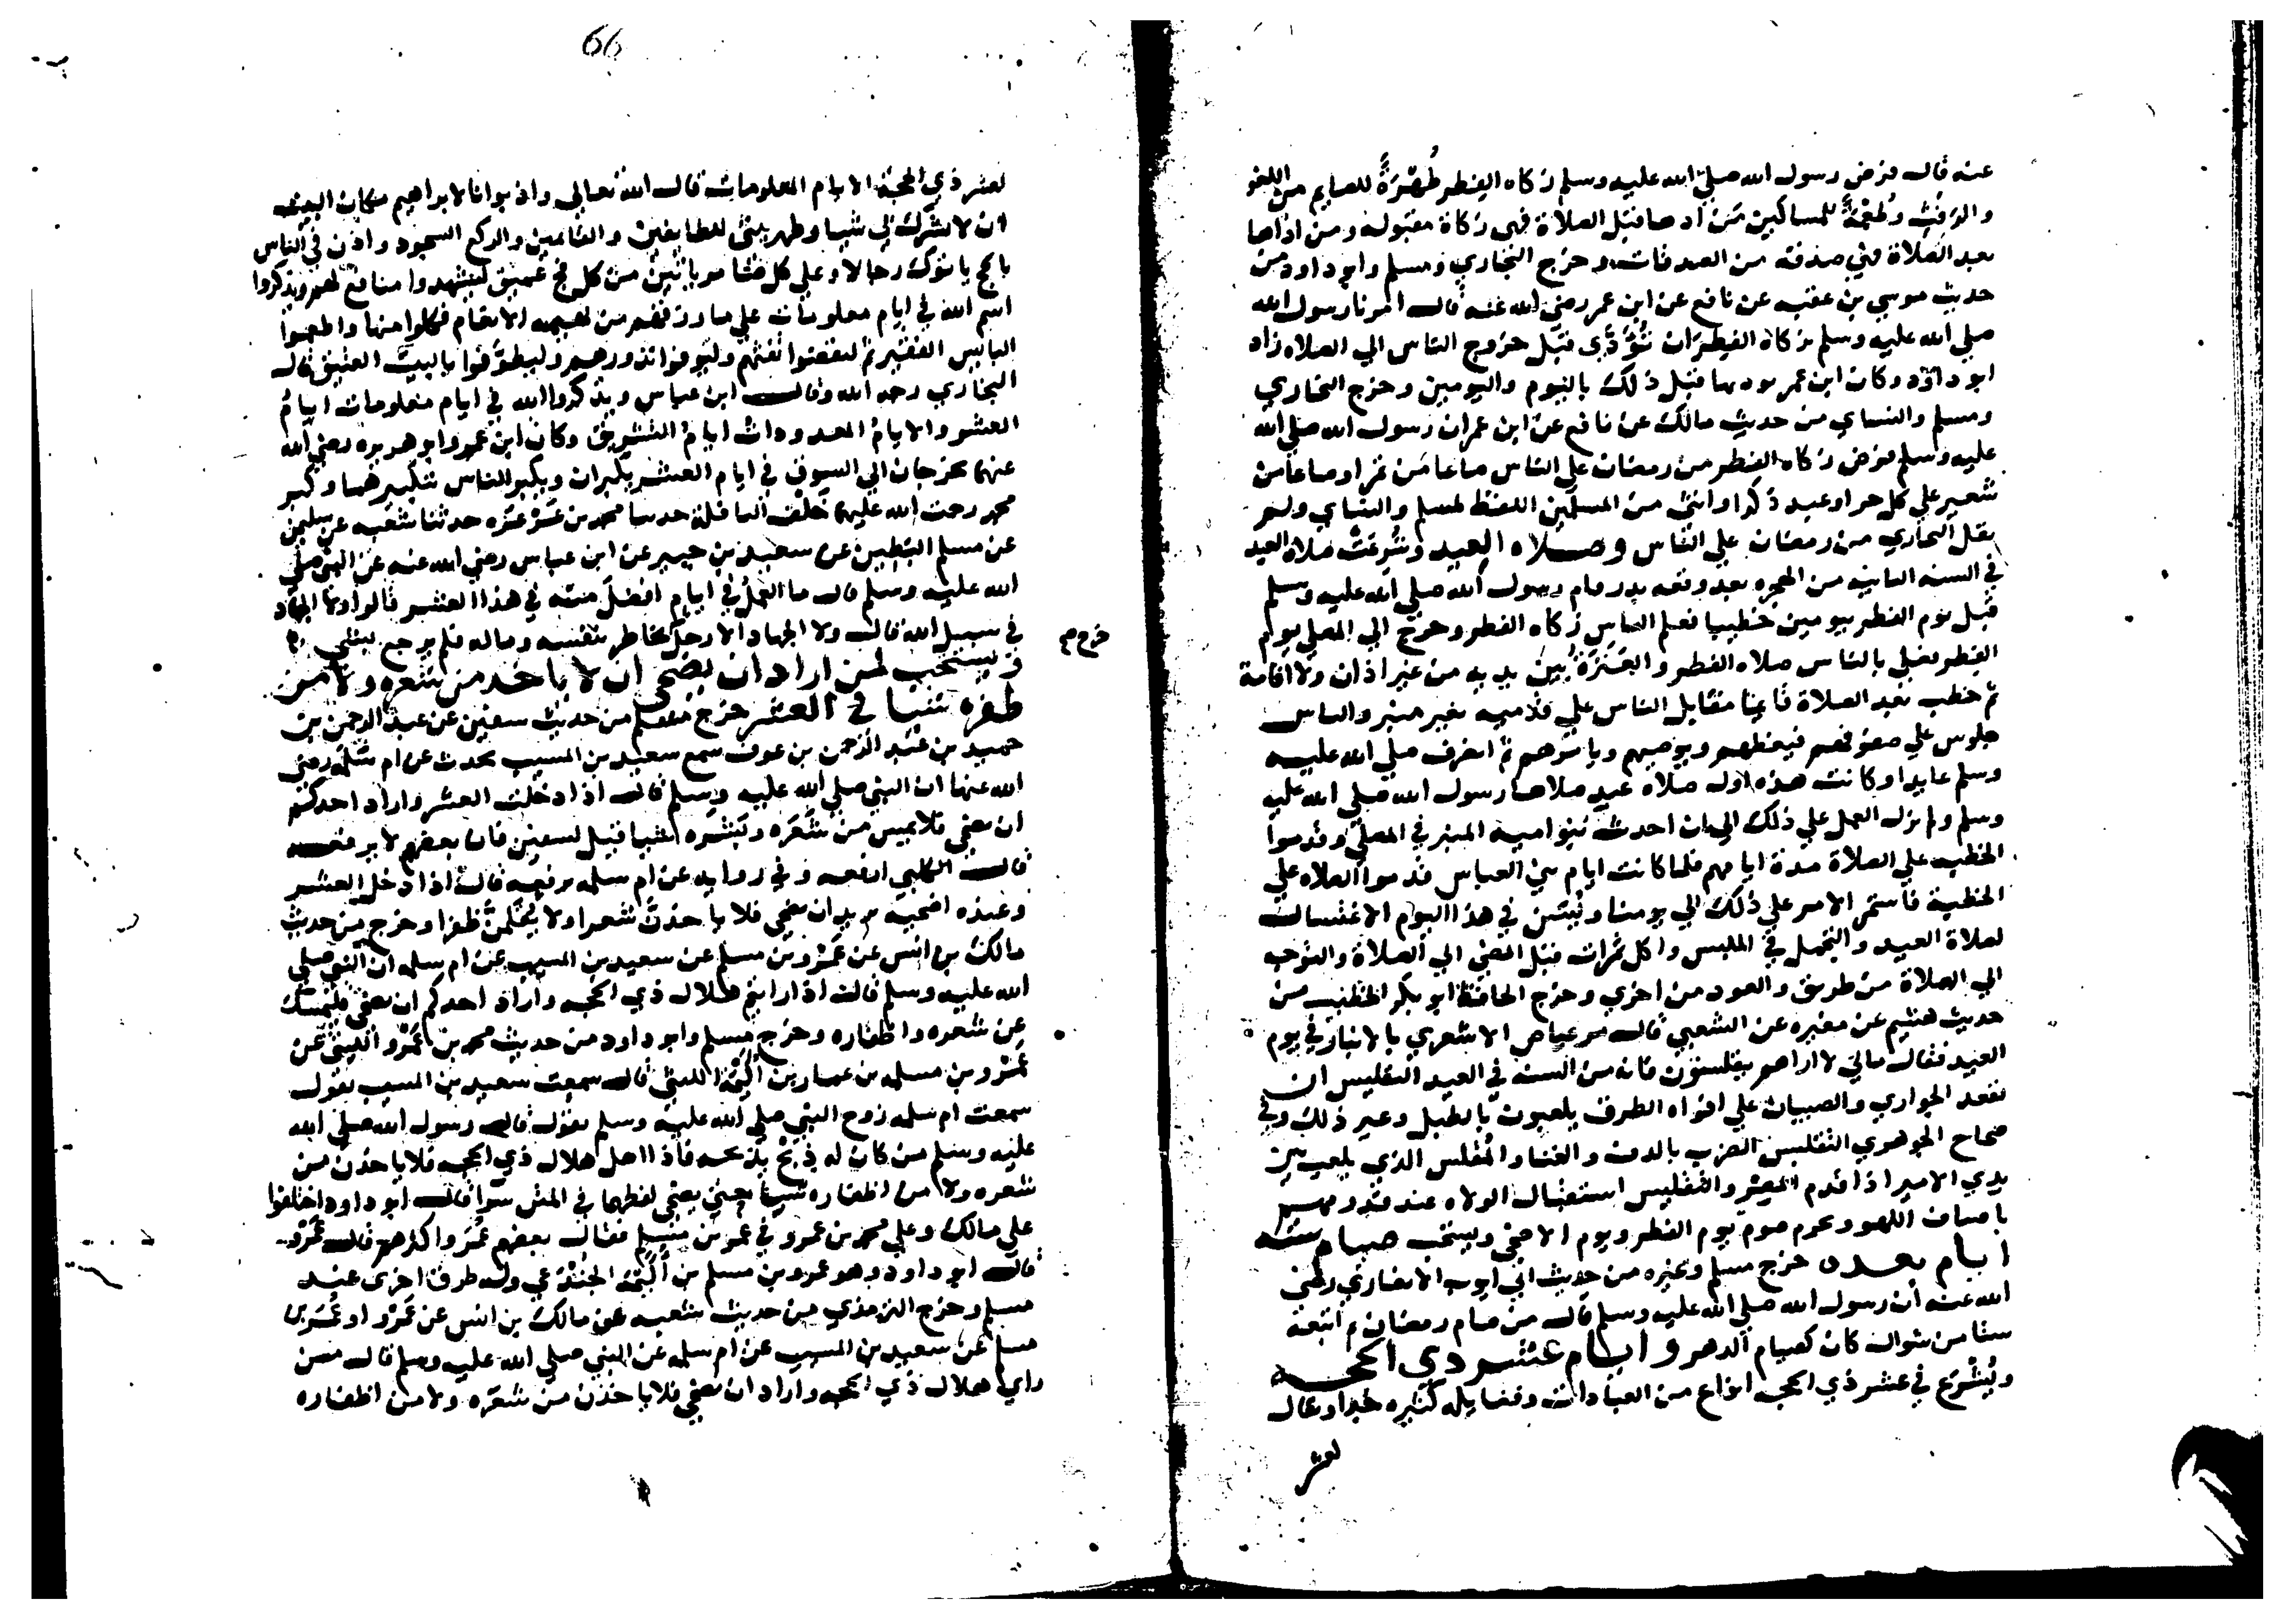 عنه قال فرض رسول الله صلى الله عليه وسلم زكاه الفطر طُهْرَةً للصايم من اللغو
والرفث وطُعْمَةً للمساكين مَن اداها قبل الصلاة فهى زكاة مقبوله ومن اداها
بعد الصلاة فهي صدقه من الصدقات وخرج البخاري ومسلم وابو داود من
حديث موسي بن عقبه عن نافع عن ابن عمر رضي الله عنه قال امرنا رسول الله
صلي الله عليه وسلم بزكاة الفطر ان تُؤَدَّى قبل خروج الناس الي الصلاه زاد
ابو داوُد وكان ابن عمر يوديها قبل ذلك باليوم واليومين وخرج البخاري
ومسلم والنساي من حديث مالك عن نافع عن ابن عمر ان رسول الله صلي الله
عليه وسلم فرض زكاه الفطر من رمضان علي الناس صاعا من تمر او صاعا من
شعير علي كل حر او عبد ذكر او انثى من المسلمين اللفظ لمسلم والنساي ولم
يقل البخاري من رمضان علي الناس وصلاه العيد وشُرِعَتْ صلاه العيد
في السنه الثانيه من الهجره بعد وقعه بدر قام رسول الله صلي الله عليه وسلم
قبل يوم الفطر بيومين خطيبا فعلم الناس زكاه الفطر وخرج الي المصلي يوم
الفطر فصلي بالناس صلاه الفطر والعَنَزَةُ بين يديه من غير اذان ولا اقامة
ثم خطب بعد الصلاة قايما مقابل الناس علي قدميه بغير منبر والناس
جلوس علي صفوفهم فيعظهم ويوصيهم ويامرهم ثم انصرف صلي الله عليه
وسلم عايدا وكانت هذه اول صلاه عيد صلاها رسول الله صلي الله عليه
وسلم ولم يزل العمل علي ذلك الي ان احدث بنو اميه المنبر في المصلي وقدموا
الخطبه علي الصلاة مدة ايامهم فلما كانت ايام بني العباس قدموا الصلاه علي
الخطبة فاستمر الامر علي ذلك الي يومنا ويُسَن في هذا اليوم الاغتسال
لصلاة العيد والتجمل في الملبس واكل تمرات قبل المضي الي الصلاة والتوجه
الي الصلاة من طريق والعود من اخري وخرج الحافظ ابو بكر الخطيب من
حديث هشيم عن مغيره عن الشعبي قال مر عياض الاشعري بالانبار في يوم
العيد فقال مالي لا اراهم يقلسون فانه من السنه في العيد التقليس ان
تقعد الجواري والصبيان علي افواه الطرق يلعبون بالطبل وغير ذلك وفي
صحاح الجوهري التقليس الضرب بالدف والغنا والمُقلس الذي يلعب بين
يدي الامير اذا قدم المصر والتقليس استقبال الولاه عند قدومهم
باصناف اللهو ويحرم صوم يوم الفطر ويوم الاضحى ويستحب صيام سته
ايام بعده خرج مسلم وغيره من حديث ابي ايوب الانصاري رضي
الله عنه ان رسول الله صلي الله عليه وسلم قال من صام رمضان ثم اتبعه
ستا من شوال كان كصيام الدهر وايام عشر ذي الحجه
ويُشْرَع في عشر ذي الحجه انواع من العبادات وفضايله كثيره جدا ويقال
لعشر
66
لعشر ذي الحجة الايام المعلومات قال الله تعالى واذ بوانا لابراهيم مكان البيت
ان لا تشرك بي شيا وطهر بيتى للطايفين والقايمين والركع السجود واذن في الناس
بالحج ياتوك رجالا وعلي كل ضامر ياتين من كل فج عميق ليشهدوا منافع لهم ويذكروا
اسم الله في ايام معلومات علي ما رزقهم من بهيمه الانعام فكلوا منها واطعموا
البايس الفقير ثم ليقضوا تفثهم وليوفوا نذورهم وليطوَّفوا بالبيت العتيق قال
البخاري رحمه الله وقال ابن عباس ويذكروا الله في ايام معلومات ايام
العشر والايامُ المعدودات ايام التشريق وكان ابن عمر وابو هريره رضي الله
عنهما يخرجان الي السوق في ايام العشر يكبران ويكبر الناس بتكبيرهما وكبر
محمد رحمت الله عليهما خلف النافلة حدثنا محمد بن عَرْعَره حدثنا شعبه عن سليمن
عن مسلم البَطِين عن سعيد بن جبير عن ابن عباس رضي الله عنه عن النبي صلي
الله عليه وسلم قال ما العملُ في ايام افضلَ منه في هذا العشر قالوا ولا الجهاد
في سبيل الله قال ولا الجهاد الا رجل يخاطر بنفسه وماله فلم يرجع بشي
خرج م
ويستحب لمن اراد ان يضحي ان لا ياخذ من شعره ولا من
ظفره شيا في العشر خرج مسلم من حديث سفين عن عبد الرحمن بن
حميد بن عبد الرحمن بن عوف سمع سعيد بن المسيب يحدث عن ام سَلَمه رضي
الله عنها ان النبي صلي الله عليه وسلم قال اذا دخلت العشر واراد احدكم
ان يضحي فلا يمس من شَعَره وبَشَره شيا قيل لسفين فان بعضهم لا يرفعه
قال لكني ارفعه وفي روايه عن ام سلمه ترفعه قال اذا دخل العشر
وعنده اضحيه يريد ان يضحي فلا ياخذنَّ شعرا ولا يُقَلمنَّ ظفرا وخرج من حديث
مالك بن انس عن عَمْرو بن مسلم عن سعيد بن المسيب عن ام سلمه ان النبي صلي
الله عليه وسلم قال اذا رايتم هلال ذي الحجه واراد احدكم ان يضحي فليمسك
عن شعره واظفاره وخرج مسلم وابو داود من حديث محمد بن عَمْرو الليثي عن
عَمْرو بن مسلم بن عمار بن اُكَيْمَة الليثي قال سمعت سعيد بن المسيب يقول
سمعت ام سلمه زوج النبي صلي الله عليه وسلم تقول قال رسول الله صلي الله
عليه وسلم من كان له ذِبْحٌ يذبحه فاذا اهل هلال ذي الحجه فلا ياخذن من
شعره ولا من اظفاره شيا حتي يضحي لفظهما في المتن سوا قال ابو داود اختلفوا
علي مالك وعلي محمد بن عمرو في عمرو بن مسلم فقال بعضهم عُمَر واكثرهم قال عَمْرو
قال ابو داود وهو عمرو بن مسلم بن اُكَيْمَة الجُنْدَعي وله طرق اخرى عند
مسلم وخرج الترمذي من حديث شعبه عن مالك بن انس عن عَمْرو او عُمَر بن
مسلم عن سعيد بن المسيب عن ام سلمه عن النبي صلي الله عليه وسلم قال من
راي هلال ذي الحجه واراد ان يضحي فلا ياخذن من شعَره ولا من اظفاره